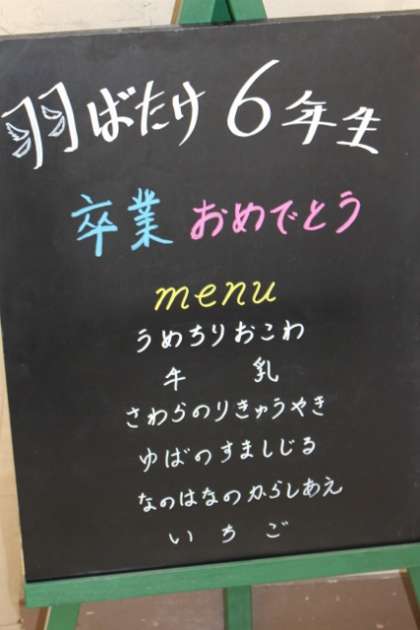 羽ばたけ6年生
卒業おめでとう
menu
うめちりおこわ
牛乳
さわらのりきゅうやき
ゆばのすましじる
なのはなのからしあえ
いちご